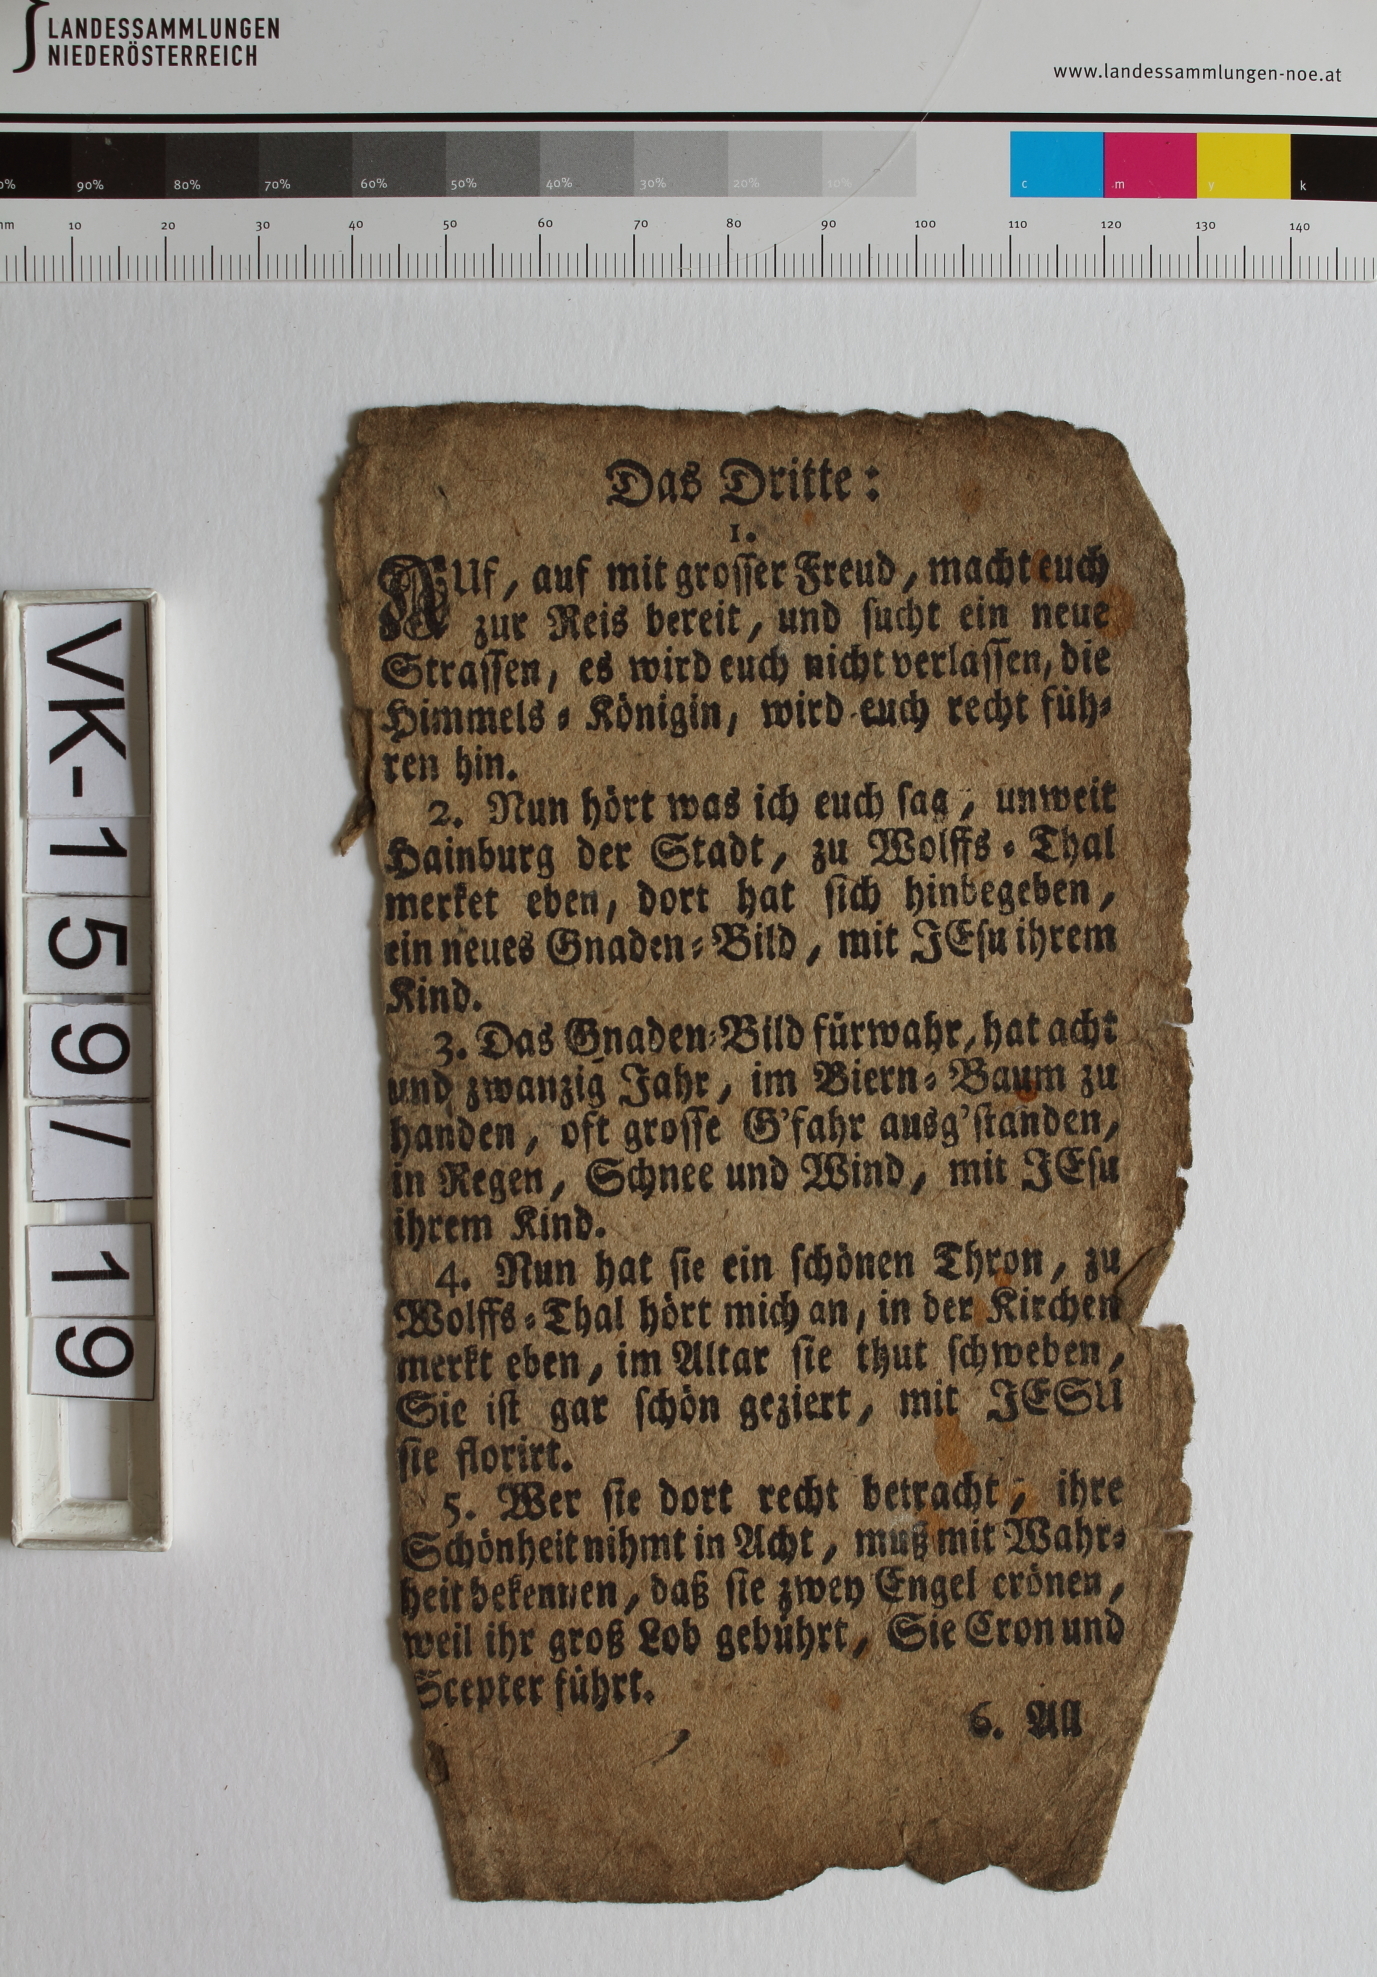 LANDESSAMMLUNGEN
NIEDERÖSTERREICH
www.landessammlungen-noe.at
90% 80% 70% 60% 50% 40% 30% 20% 10% c m y k
10 20 30 40 50 60 70 80 90 100 110 120 130 140
VK-159/19
Das Dritte:
1.
AUf, auf mit grosser Freud, macht euch
zur Reis bereit, und sucht ein neue
Strassen, es wird euch nicht verlassen, die
Himmels-Königin, wird euch recht füh-
ren hin.
2. Nun hört was ich euch sag, unweit
Hainburg der Stadt, zu Wolffs-Thal
merket eben, dort hat sich hinbegeben,
ein neues Gnaden-Bild, mit JEsu ihrem
Kind.
3. Das Gnaden-Bild fürwahr, hat acht
und zwanzig Jahr, im Biern-Baum zu
handen, oft grosse G'fahr ausg'standen,
in Regen, Schnee und Wind, mit JEsu
ihrem Kind.
4. Nun hat sie ein schönen Thron, zu
Wolffs-Thal hört mich an, in der Kirchen
merkt eben, im Altar sie thut schweben,
Sie ist gar schön geziert, mit JESU
sie florirt.
5. Wer sie dort recht betracht, ihre
Schönheit nihmt in Acht, muß mit Wahr-
heit bekennen, daß sie zwey Engel crönen,
weil ihr groß Lob gebührt, Sie Cron und
Scepter führt.
6. All